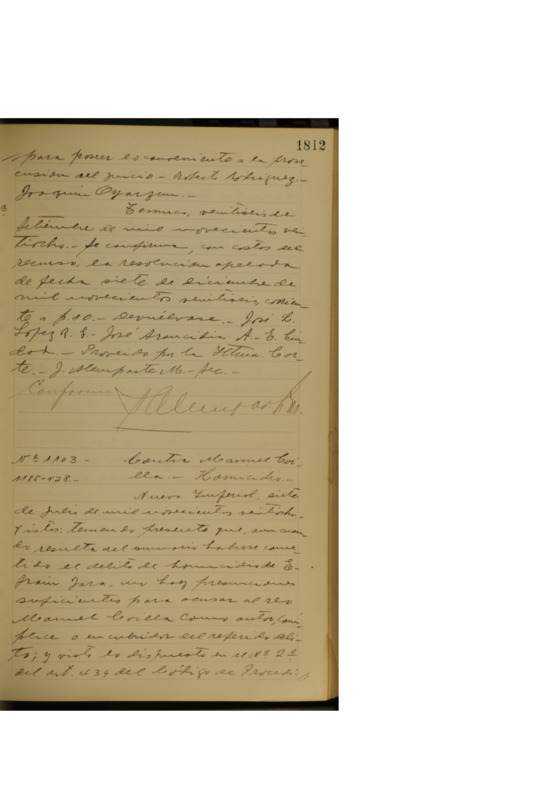 1812
para poner lo conveniente a la prose
cusion del juicio.- Robert Rodriguez.-
Joaquin Oyarzun.-
Temuco, veintiseis de
Setiembre de mil novecientos vein
tiocho.- Se confirma, con costas del
recurso, la resolucion apelada
de fecha siete de diciembre de
mil novecientos veintiseis, corrien
te a f. 10.- Devuélvase.- José L.
Lopez R. E.- José Arancibia A.- E.
- Proveido por la Iltma. Cor
te.- J. Alemparte M.- Sec.-
Conforme
Nº 1103.- Contra Manuel Coi-
1185-928.- lla.- Homicidio.-
Nueva Imperial, siete
de Julio de mil novecientos veintiocho.-
Vistos: teniendo presente que, aun cuan
do resulta del sumario haberse come
tido el delito de homicidio de E-
frain Jara, no hay presunciones
suficientes para acusar al reo
Manuel Coilla como autor, cóm
plice o encubridor del referido deli-
to; y visto lo dispuesto en el Nº 2º
del art. 439 del Código de Procedi-